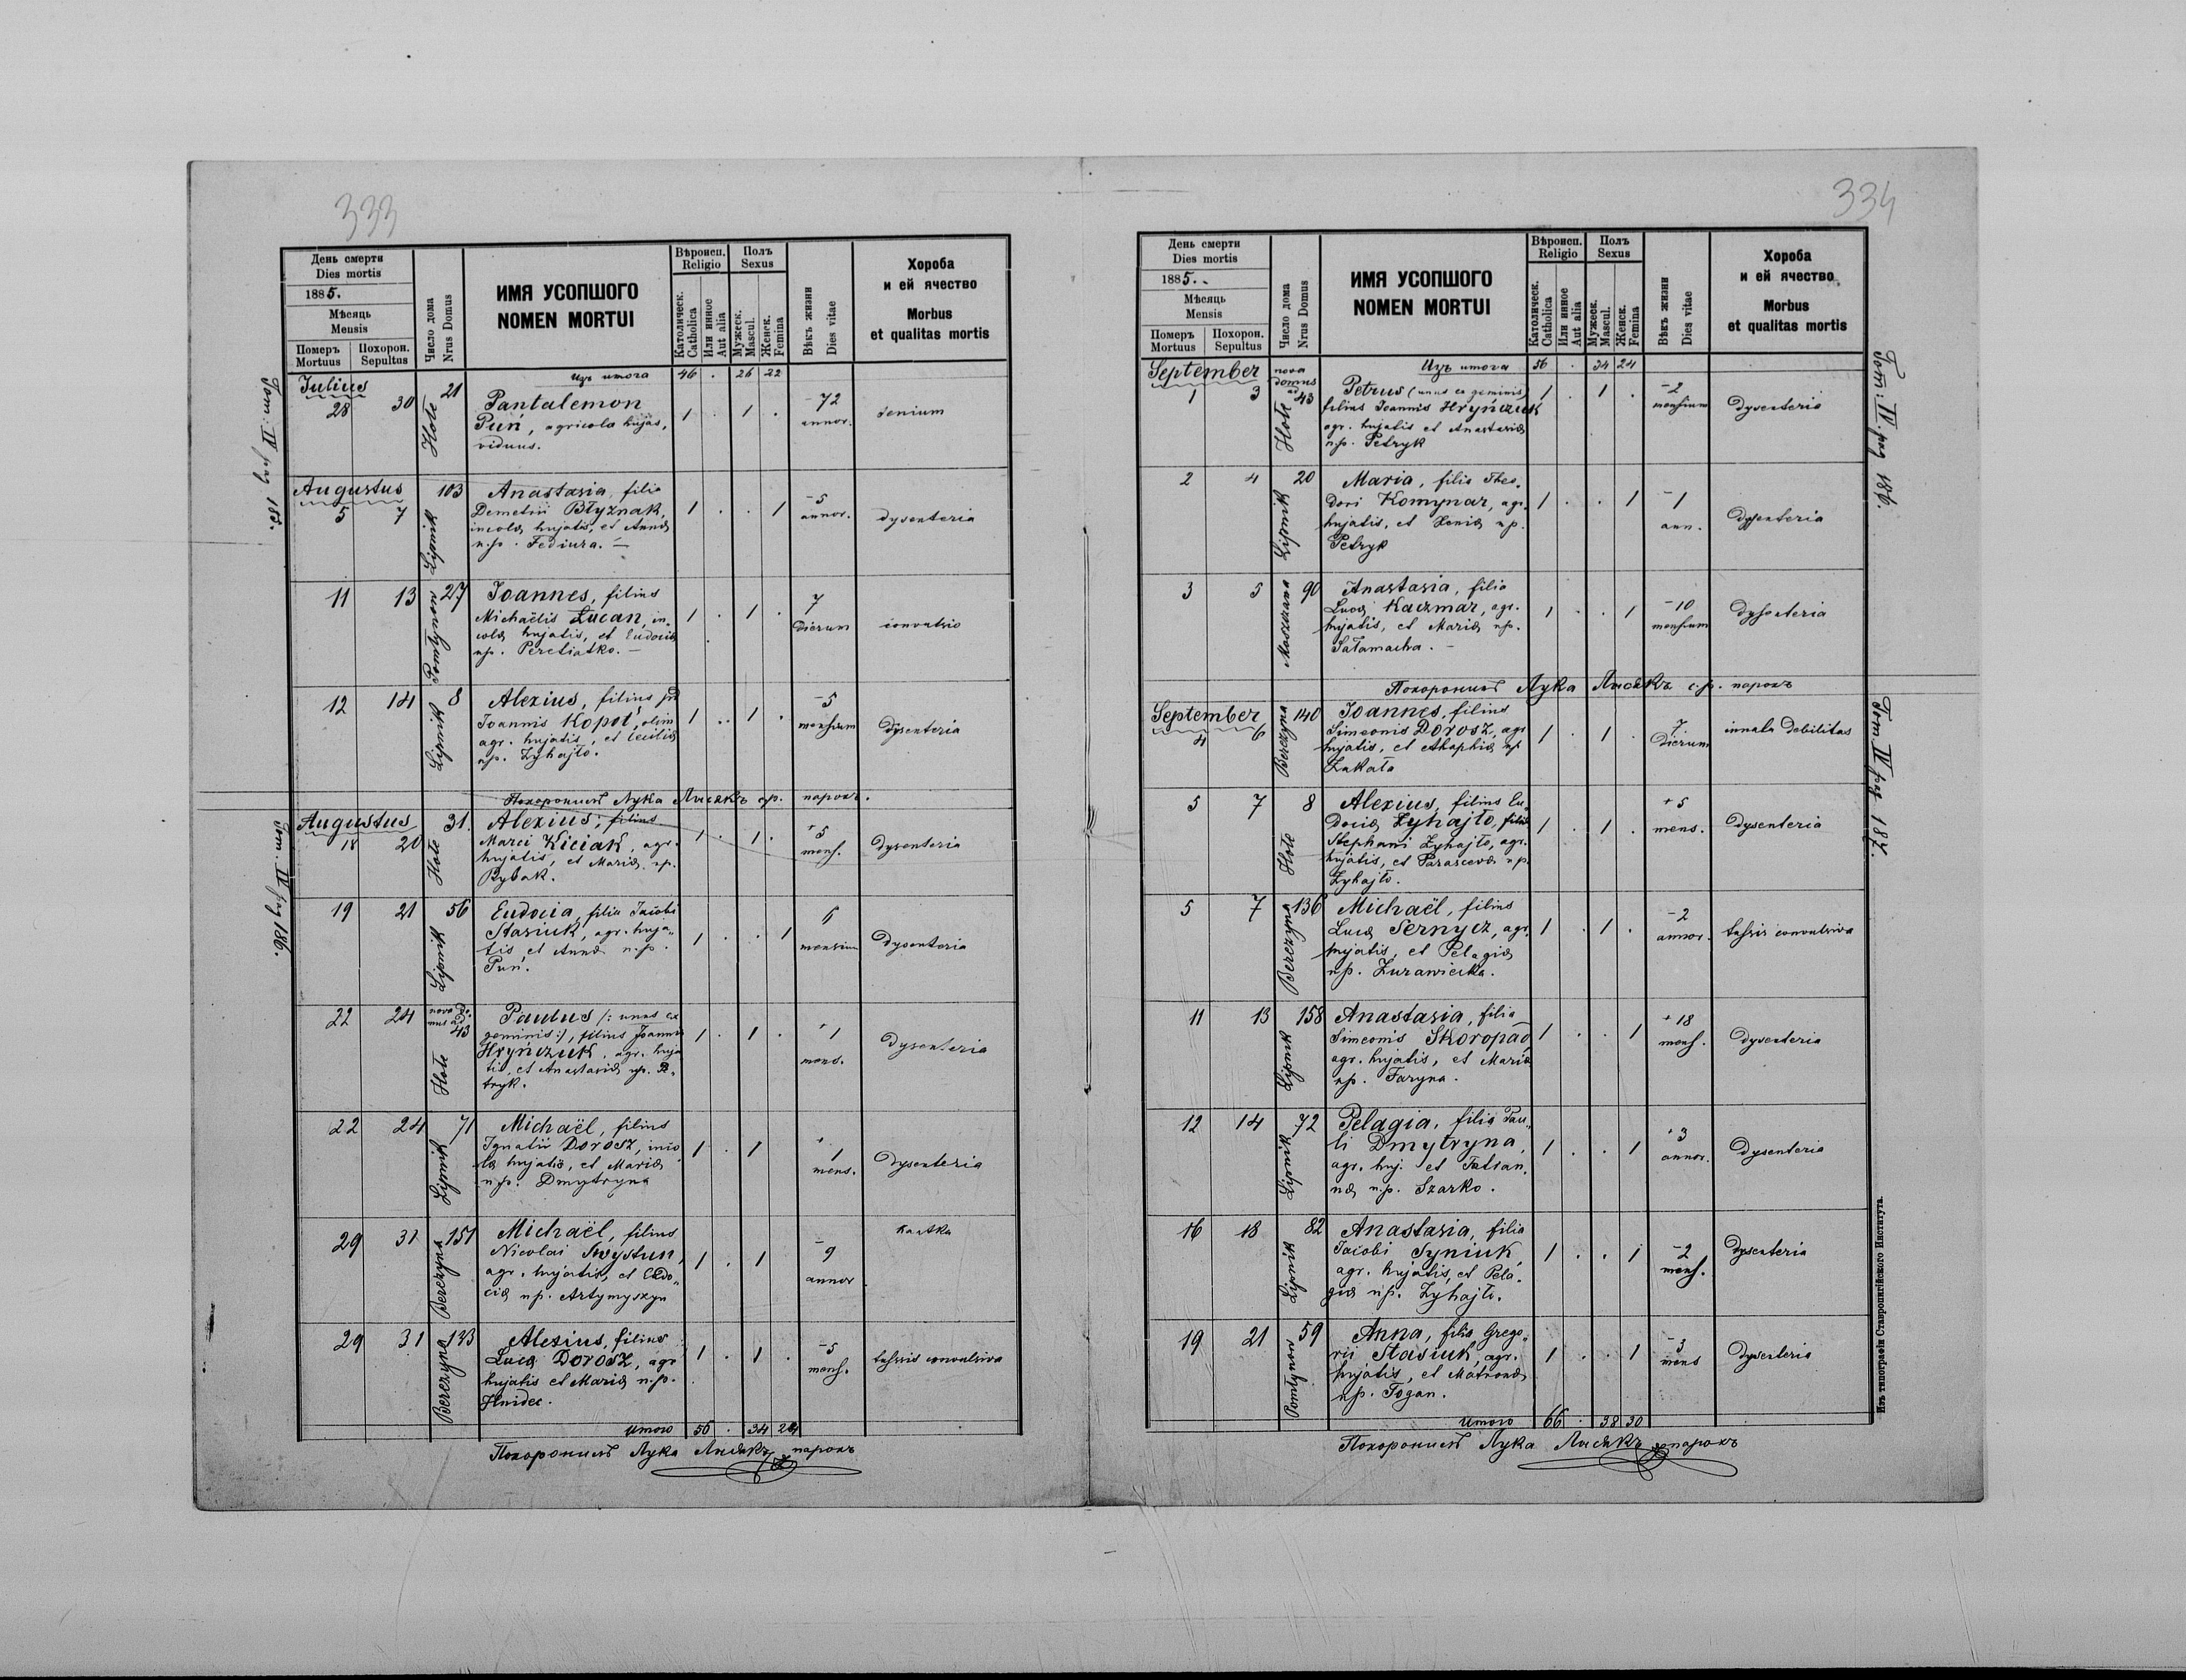 333
День смерти
Dies mortis
1885.
Мѣсяць
Mensis
Померъ
Mortuus
Похорон.
Sepultus
Число дома
Nrus Domus
ИМЯ УСОПШОГО
NOMEN MORTUI
Вѣроисп.
Religio
Католическ.
Catholica
Или инное
Aut alia
Полъ
Sexus
Мужеск.
Mascul.
Женск.
Femina
Вѣкъ жизни
Dies vitae
Хороба
и ей ячество
Morbus
et qualitas mortis
46 . 26 22
Tom: IV pag 185.
Julius
28 30 Hołe 21
Pantalemon
Puń, agricola hujas,
viduus.
1 . 1 .
72
annor.
senium
Augustus
5 7 Lipnik 103
Anastasia, filia
Demetrii Błyznak,
incolæ hujatis, et Annæ
n.p. Fediura. —
1 . . 1
5
annor.
dysenteria
11 13 Pomłynow 27
Joannes, filius
Michaëlis Łucan, in-
colæ hujatis, et Eudociæ
np. Peretiatko. —
1 . 1 .
7
dierum
convulsio
12 14 Lipnik 8
Alexius, filius
Joannis Kopot, olim
agr. hujatis, et Ceciliæ
np. Zyhajło.
1 . 1 .
5
mensium
dysenteria
Похоронилъ Лука Лисякъ гр. парохъ.
Tom. IV pag 186.
Augustus
18 20 Hołe 31.
Alexius, filius
Marci Kiciak, agr.
hujatis, et Mariæ np.
Rybak.
1 . 1 .
+5
mens.
dysenteria
19 21 Lipnik 56
Eudocia, filia Jacobi
Stasiuk, agr. huja-
tis, et Annæ n.p.
Pun.
1 . . 1
mensium
dysenteria
22 24 Hołe nova do-
mus ad
43
Paulus /: unus ex
geminis :/, filius Joannis
Hryńczuk, agr. huja
tis, et Anastasiæ np. Pe-
tryk.
1 . 1 .
1
mens.
dysenteria
22 24 Lipnik 71
Michaël, filius
Ignatii Dorosz, inco
læ hujatis, et Mariæ
n.p. Dmytryna
1 . 1
1
mens.
dysenteria
29 31 Berezyna 151
Michaël, filius
Nicolai Swystun,
agr. hujatis, et Eudo-
ciæ np. Artymyszyn
1 . 1
9
annor
29 31 Berezyna 133
Alexius, filius
Lucæ Dorosz, agr
hujatis et Mariæ n.p.
Hnidec.
1 . 1 .
5
mens.
tussis convulsiva
Итого 56 . 34 24
Похоронилъ Лука Лисякъ парохъ
334
День смерти
Dies mortis
1885.
Мѣсяць
Mensis
Померъ
Mortuus
Похорон.
Sepultus
Число дома
Nrus Domus
ИМЯ УСОПШОГО
NOMEN MORTUI
Вѣроисп.
Religio
Католическ.
Catholica
Или инное
Aut alia
Полъ
Sexus
Мужеск.
Mascul.
Женск.
Femina
Вѣкъ жизни
Dies vitae
Хороба
и ей ячество
Morbus
et qualitas mortis
56 . 34 24
Tom: IV. pag 186.
September
1 3 Hołe nova
domus
ad
43
Petrus (unus ex geminis)
filius Joannis Hryńczuk
agr. hujatis et Anastasiæ
n.p. Petryk
1 . 1 .
2
mensium
dysenteria
2 4 Lipnik 20
Maria, filia Theo-
dori Komynar, agr.
hujatis, et Xeniæ np.
Petryk
1 . . 1
1
ann.
dysenteria
3 5 Moszczana 90
Anastasia, filia
Lucæ Kaczmar, agr.
hujatis, et Mariæ np.
Sałamacha. —
1 . . 1
10
mensium
dysenteria
Похоронилъ Лука Лисякъ гр. парохъ
Tom. IV pag 187.
September
4 6 Berezyna 140
Joannes, filius
Simeonis Dorosz, agr
hujatis, et Ahaphiæ np
Zakała
1 . 1 .
7
dierum
innata debilitas
5 7 Hołe 8
Alexius, filius Eu-
dociæ Zyhajło, filiæ
Stephani Zyhajło, agr.
hujatis, et Parascevæ np
Zyhajło.
1 . 1 .
+5
mens.
dysenteria
5 7 Berezyna 136
Michaël, filius
Lucæ Sernycz, agr.
hujatis, et Pelagiæ
np. Zurawicka.
1 . 1 .
2
annor.
tussis convulsiva
11 13 Lipnik 158
Anastasia, filia
Simeonis Skoropad,
agr. hujatis, et Mariæ
np. Faryna.
1 . . 1
+18
mens.
dysenteria
12 14 Lipnik 72
Pelagia, filia Pau-
li Dmytryna,
agr. huj. et Tatian-
næ n.p. Szarko.
1 . . 1
+3
annor.
dysenteria
16 18 Lipnik 82
Anastasia, filia
Jacobi Syniuk,
agr. hujatis, et Pela-
giæ np. Zyhajło.
1 . . 1
2
mens.
dysenteria
19 21 Pomłynow 59
Anna, filia Grego-
rii Stasiuk, agr.
hujatis, et Matronæ
np. Togan.
1 . . 1
3
mens
dysenteria
Итого 66 . 38 30
Похоронилъ Лука Лисякъ парохъ
Изъ типографіи Ставропигійского Института.